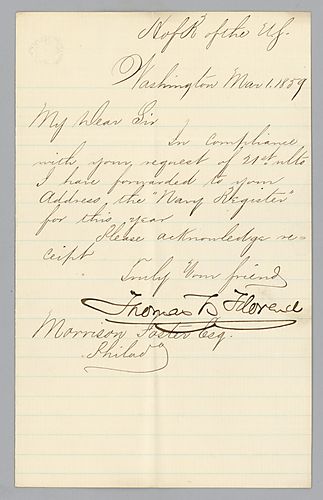 H of R of the U S.
Washington Mar 1. 1859
My Dear Sir
In compliance
with your request of 21st ulto
I have forwarded to your
Address the "Navy Register"
for this year
Please acknowledge re-
ceipt
Truly Your friend
Thomas B Florence
Morrison Foster Esq.
Philada